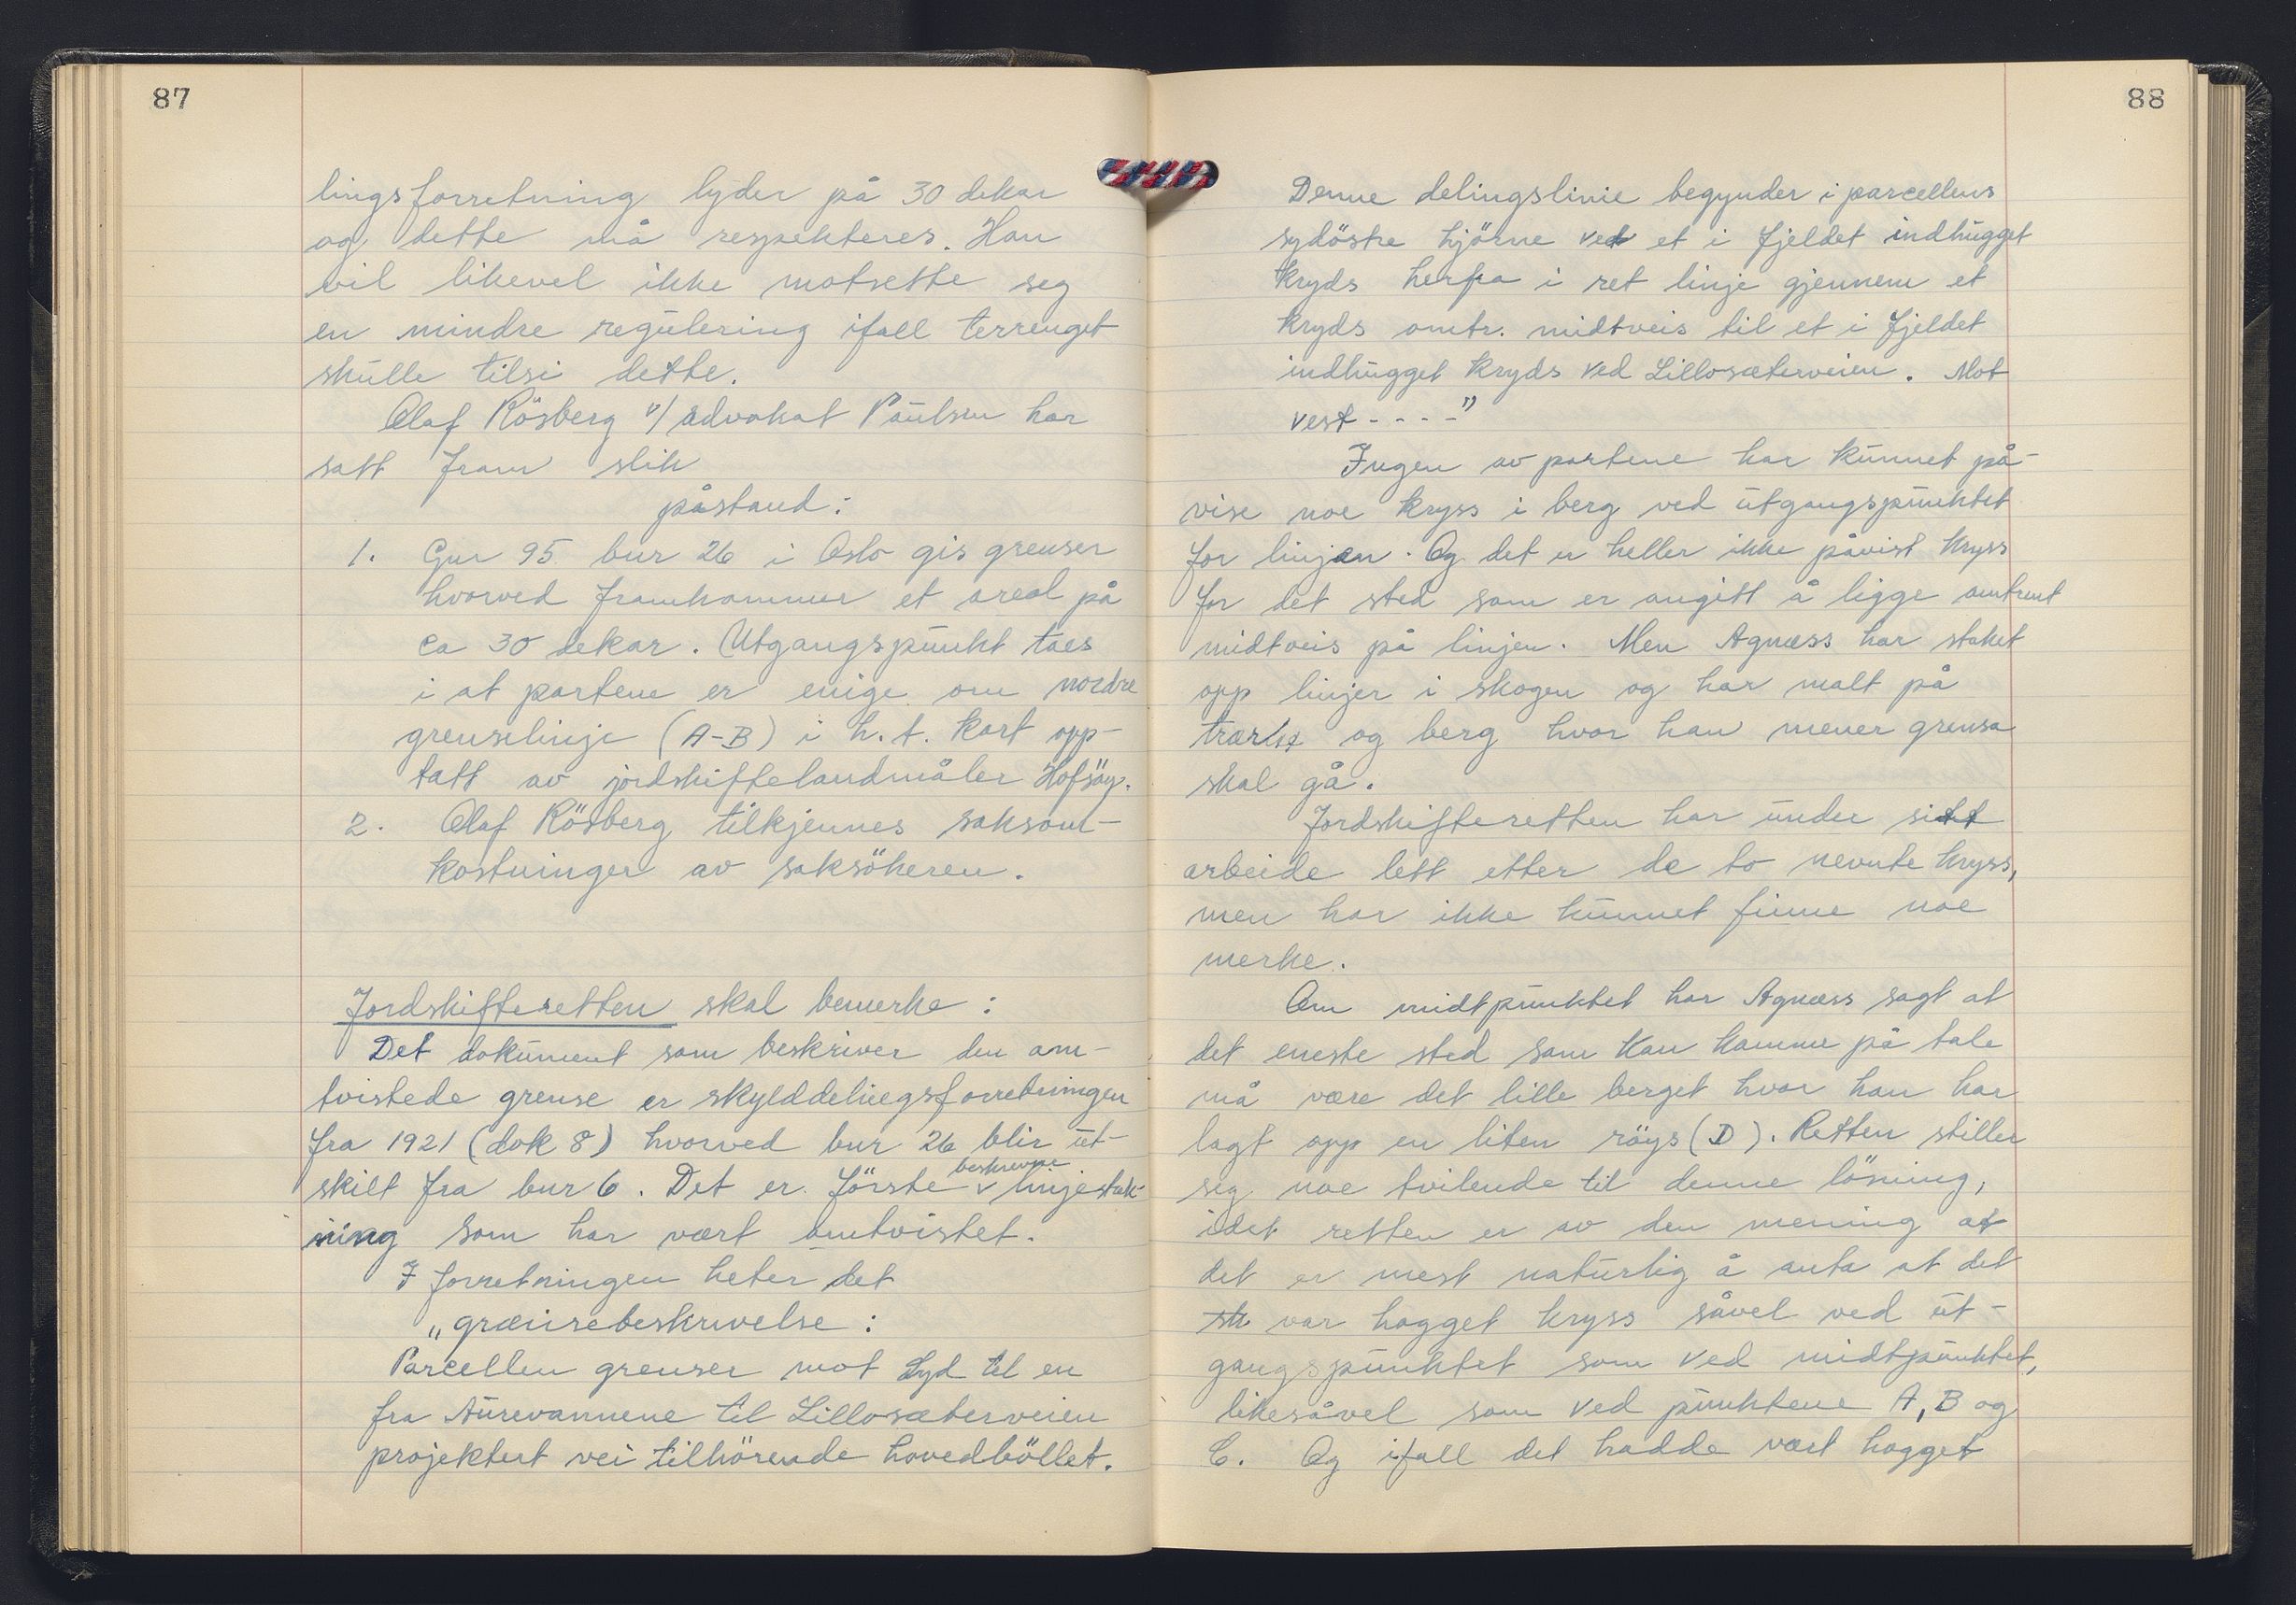 87
lingsforretning lyder på 30 dekar
og dette må respekteres. Han
vil likevel ikke motsette seg
en mindre regulering ifall terrenget
skulle tilsi dette.
Olaf Rösberg v/ advokat Paulsen har
satt fram slik
påstand:
1. Gnr 95 bnr 26 i Oslo gis grenser
hvorved framkommer et areal på
ca 30 dekar. Utgangspunkt taes
i at partene er enige om nordre
grenselinje (A-B) i h.t. kart opp-
tatt av jordskiftelandmåler Hofsöy.
2. Olaf Rösberg tilkjennes saksom-
kostninger av saksökeren.
Jordskifteretten skal bemerke:
Det dokument som beskriver den om-
tvistede grense er skylddelingsforretningen
fra 1921 (dok 8) hvorved bnr 26 blir ut-
skilt fra bnr 6. Det er förste beskrevne linjestrek-
ning som har vært omtvistet.
I forretningen heter det
„grænsebeskrivelse:
Parcellen grenser mot Syd til en
fra Aurevannene til Lillosæterveien
projektert vei tilhörende hovedböllet.
88
Denne delingslinie begynder i parcellens
sydöstre hjörne ved et i fjeldet indhugget
kryds herfra i ret linje gjennem et
kryds omtr. midtveis til et i fjeldet
indhugget kryds ved Lillosæterveien. Mot
vest - - - -"
Ingen av partene har kunnet på-
vise noe kryss i berg ved utgangspunktet
for linjen. Og det er heller ikke påvist kryss
for det sted som er angitt å ligge omtrent
midtveis på linjen. Men Agnæss har staket
opp linjer i skogen og har malt på
trær og berg hvor han mener grensa
skal gå.
Jordskifteretten har under sitt
arbeide lett etter de to nevnte kryss,
men har ikke kunnet finne noe
merke.
Om midtpunktet har Agnæss sagt at
det eneste sted som kan komme på tale
må være det lille berget hvor han har
lagt opp en liten röys (D). Retten stiller
seg noe tvilende til denne lösning,
idet retten er av den mening at
det er mest naturlig å anta at det
var hogget kryss såvel ved ut-
gangspunktet som ved midtpunktet,
likesåvel som ved punktene A, B og
C. Og ifall det hadde vært hogget